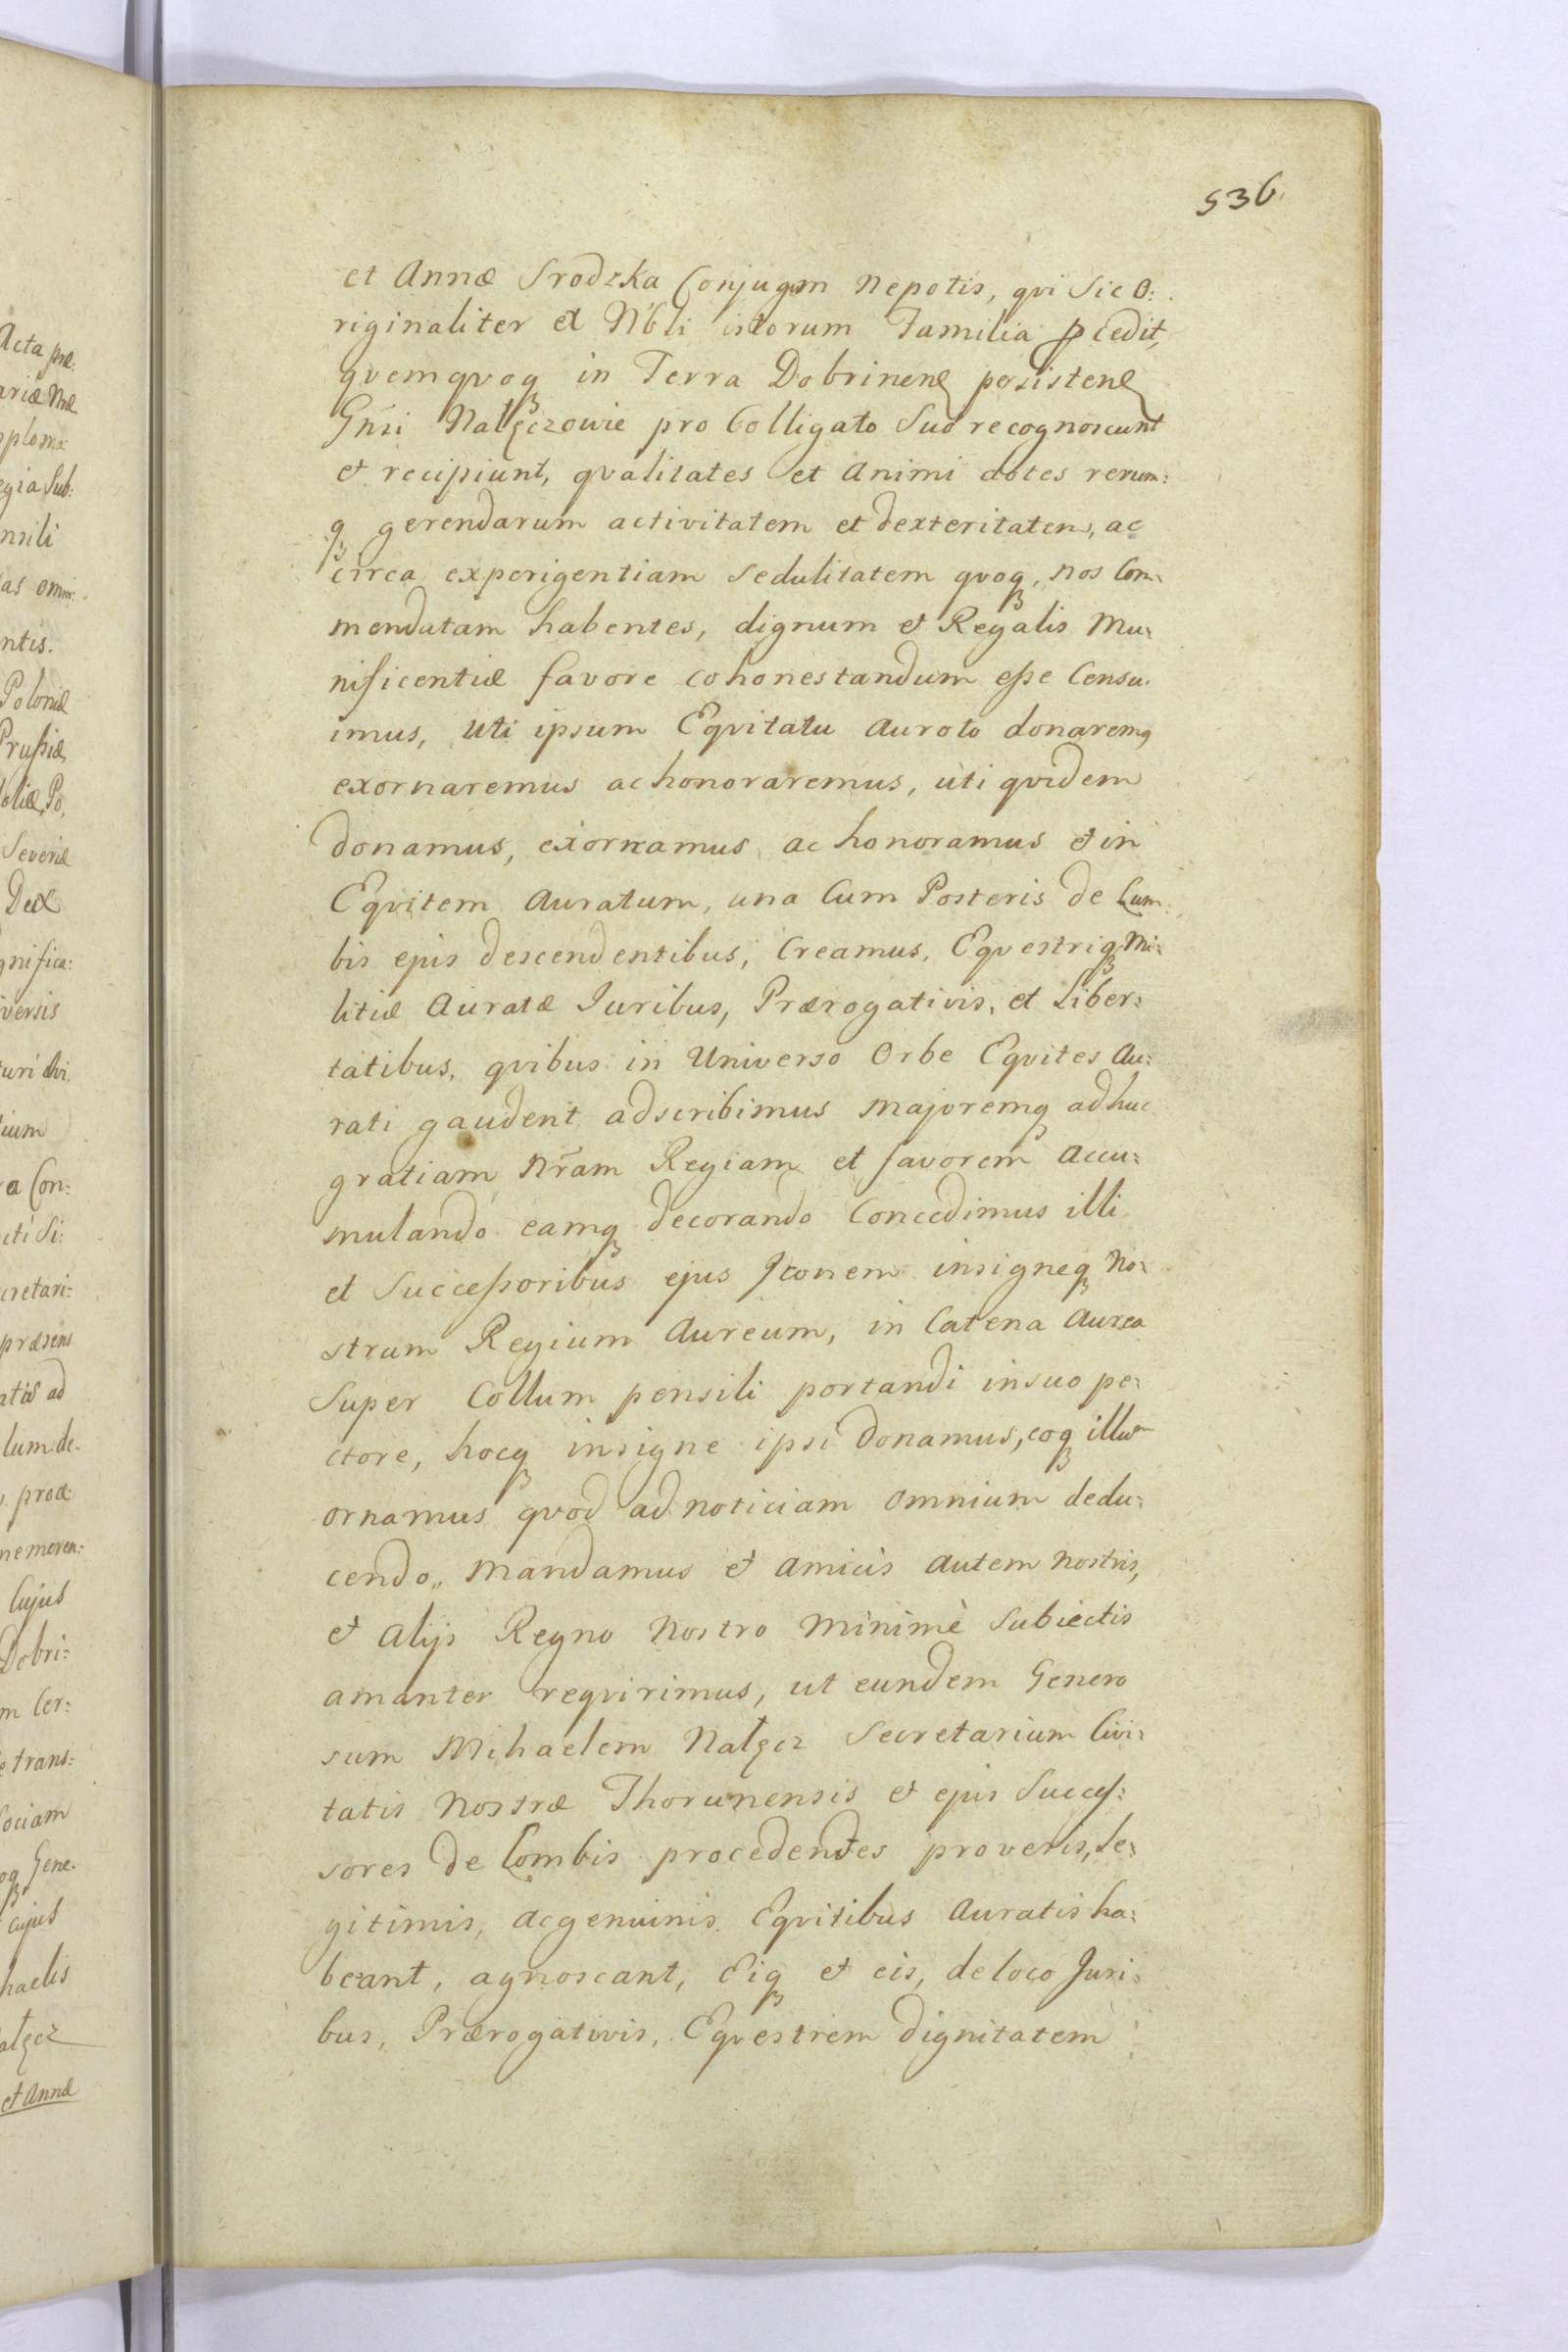 536
et Annæ Srodzka Conjugum Nepotis, qvi Sic O:
riginaliter ex Nbli istorum Familia pcedit,
qvemqvoq in Terra Dobrinen persisten
Gnsi Nałęczowie pro Colligato Suo recognoscunt
et recipiunt, qvalitates et Animi dotes rerum:
q gerendarum activitatem et dexteritatem, ac
circa experigentiam Sedulitatem qvoq, nos Com:
mendatam habentes, dignum et Regalis Mu:
nificentiæ favore cohonestandum eſse Censu:
imus, uti ipsum Eqvitatu Auroto donaremq
exornaremus ac honoraremus, uti qvidem
donamus, exornamus ac honoramus et in
Eqvitem Auratum, una Cum Posteris de Lum:
bis ejus descendentibus, Creamus, Eqvestriq Mi:
litiæ Auratæ Juribus, Prærogativis, et Liber:
tatibus, qvibus in Universo Orbe Eqvites Au:
rati gaudent adscribimus majoremq adhuc
gratiam nram Regiam et favorem Accu:
mulando eamq decorando Concedimus illi
et Succeſsoribus ejus Jconem insigneq No:
strum Regium Aureum, in Catena Aurea
Super Collum pensili portandi insuo pe:
ctore, hocq insigne ipsi donamus, eoq illum
ornamus qvod ad noticiam omnium dedu:
cendo„ mandamus et Amicis Autem nostris,
et Alijs Regno Nostro Minimè Subiectis
amanter reqvirimus, ut eundem Genero
sum Mihaelem Nałęcz Secretarium Civi:
tatis Nostræ Thorunensis et ejus Succeſ:
sores de Lombis procedentes proveris, Le:
gitimis, Acgenuinis Eqvitibus Auratis ha:
beant, agnoscant, Eiq et eis, de loco Juri:
bus, Prærogativis, Eqvestrem dignitatem
Acta præ:
ariæ
egia Sub:
nsili
as omni:
ntis.
Poloniæ
Pruſsiæ,
Severiæ
Dux
gnifica:
versis
ium
ra Con:
cretari:
præsens
lum de:
præ:
nemoren:
Cujus
Dobri:
m Cer:
e trans:
ociam
oq Gene:
Cujus
haelis
ałęcz
et Annæ